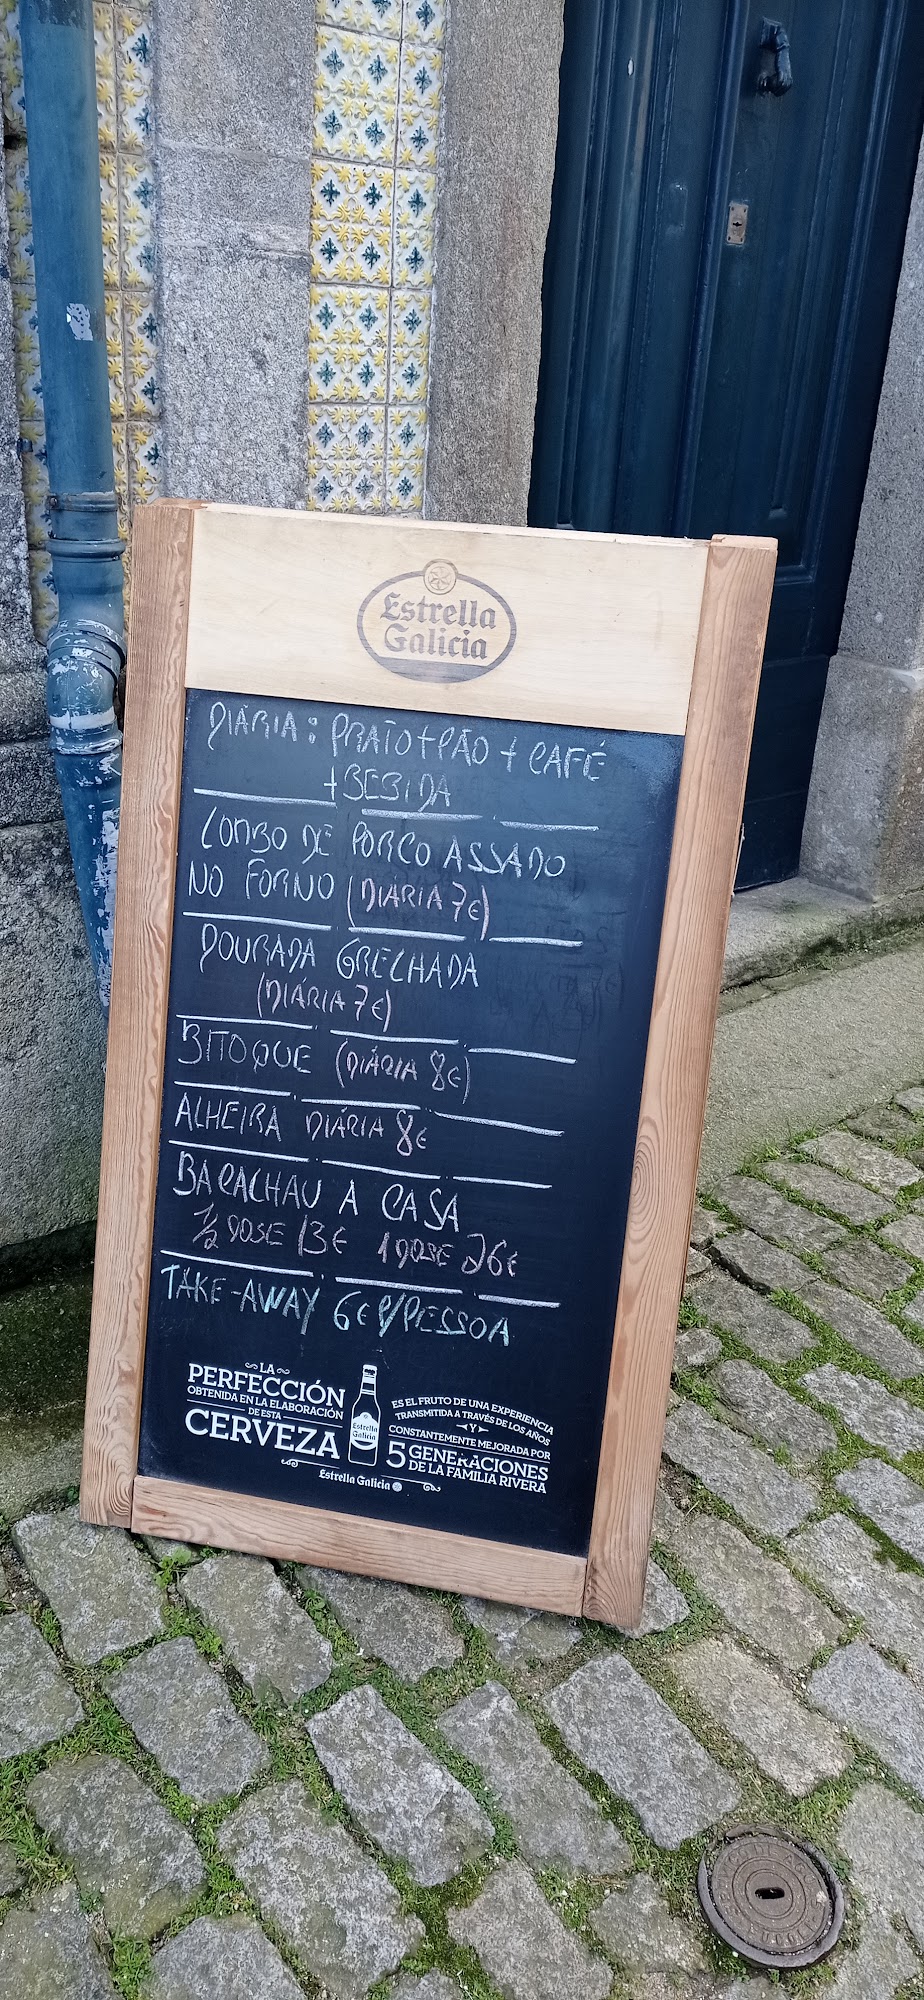 Estrella
Galicia
DIÁRIA: PRATO+PÃO + CAFÉ
+BEBIDA
LOMBO DE PORCO ASSADO
NO FORNO (DIÁRIA 7€)
DOURADA GRELHADA
(DIÁRIA 7€)
BITOQUE (DIÁRIA 8€)
ALHEIRA DIÁRIA 8€
BACALHAU A CASA
1/2 DOSE 13€ 1 DOSE 26€
TAKE-AWAY 6€ P/PESSOA
LA
PERFECCIÓN
OBTENIDA EN LA ELABORACIÓN
DE ESTA
CERVEZA
Estrella
Galicia
ES EL FRUTO DE UNA EXPERIENCIA
TRANSMITIDA A TRAVÉS DE LOS AÑOS
Y
CONSTANTEMENTE MEJORADA POR
5 GENERACIONES
DE LA FAMILIA RIVERA
Estrella Galicia